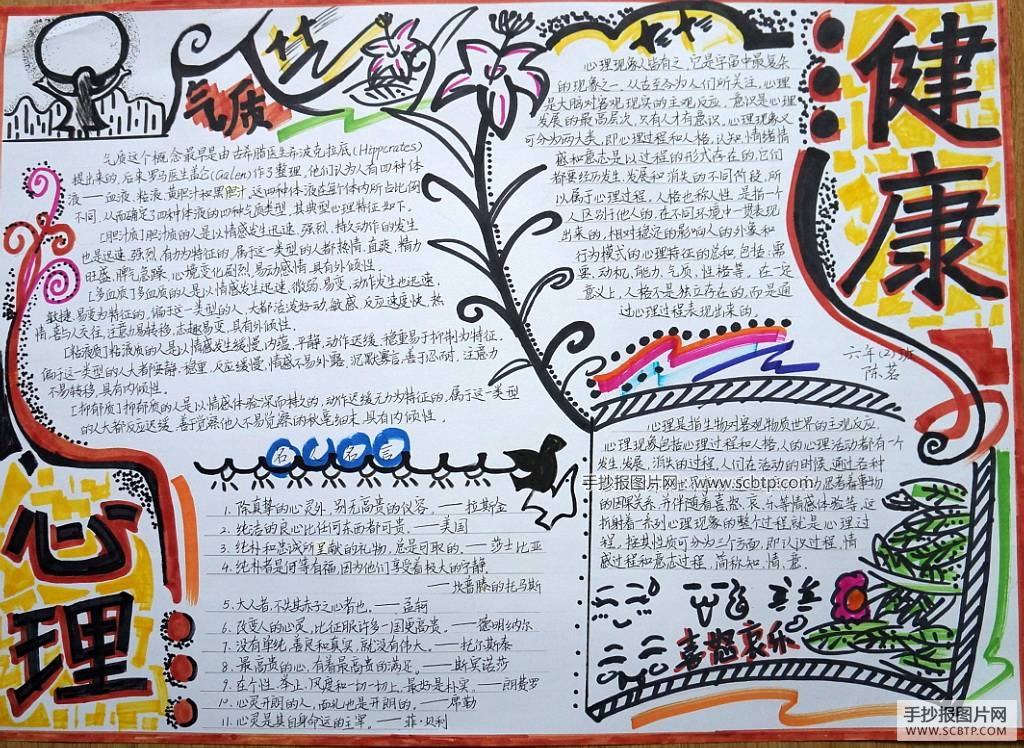 气质
气质这个概念最早是由古希腊医生希波克拉底(Hippcrates)
提出来的,后来罗马医生盖仑(Galen)作了整理,他们认为人有四种体
液——血液、粘液、黄胆汁和黑胆汁。这四种体液在每个体内所占比例
不同,从而确定了四种体液的四种气质类型,其典型心理特征如下。
[胆汁质]胆汁质的人是以情感发生迅速、强烈、持久,动作的发生
也是迅速、强烈、有力为特征的。属于这一类型的人都热情,直爽,精力
旺盛,脾气急躁,心境变化剧烈,易动感情,具有外倾性。
[多血质]多血质的人是以情感发生迅速、微弱、易变,动作发生也迅速、
敏捷、易变为特征的。偏于这一类型的人,大都活泼好动,敏感,反应速度快,热
情,喜与人交往,注意力易转移,志趣易变,具有外倾性。
[粘液质]粘液质的人是以情感发生缓慢、内蕴、平静,动作迟缓、稳重易于抑制为特征。
偏于这一类型的人大都安静,稳重,反应缓慢,情感不易外露,沉默寡言,善于忍耐,注意力
不易转移,具有内倾性。
[抑郁质]抑郁质的人是以情感体验深而持久的、动作迟缓无力为特征的。属于这一类型
的人大都反应迟缓,善于觉察他人不易觉察的秋毫细末,具有内倾性。
心理现象人皆有之,它是宇宙中最复杂
的现象之一,从古至今为人们所关注。心理
是大脑对客观现实的主观反应,意识是心理
发展的最高层次,只有人才有意识。心理现象又
可分为两大类,即心理过程和人格。认知、情绪情
感和意志是以过程的形式存在的,它们
都要经历发生、发展和消失的不同阶段,所
以属于心理过程。人格也称人性,是指一个
人区别于他人的,在不同环境中一贯表现
出来的,相对稳定的影响人的外象和
行为模式的心理特征的总和,包括:需
要、动机、能力、气质、性格等。在一定
意义上,人格不是独立存在的,而是通
过心理过程表现出来的。
健康
六年(2)班
陈茗
名人名言
1. 除真挚的心灵外,别无高贵的仪容。——拉斯金
2. 纯洁的良心比任何东西都可贵。——美国
3. 纯朴和忠诚所呈献的礼物,总是可取的。——莎士比亚
4. 纯朴者是何等有福,因为他们享受着极大的宁静。
——坎普滕的托马斯
5. 大人者,不失其赤子之心者也。——孟轲
6. 改变人的心灵,比征服许多一国更高贵。——德明纳尔
7. 没有单纯、善良和真实,就没有伟大。——托尔斯泰
8. 最高贵的心,有着最高贵的满足。——斯宾诺莎
9. 在个性、举止、风度和一切一切上,最好是朴实。——朗费罗
10. 心灵开朗的人,面孔也是开朗的。——席勒
11. 心灵是其自身命运的主宰。——菲·贝利
心理是指生物对客观物质世界的主观反应,
心理现象包括心理过程和人格,人的心理活动都有一个
发生、发展、消失的过程。人们在活动的时候,通过各种
手抄报图片网:www.scbtp.com
的因果关系,并伴随着喜、怒、哀、乐等情感体验等。这
折射着一系列心理现象的整个过程就是心理过
程。按其性质可分为三个方面,即认识过程、情
感过程和意志过程,简称知、情、意。
喜怒哀乐
心理
手抄报图片网
WWW.SCBTP.COM